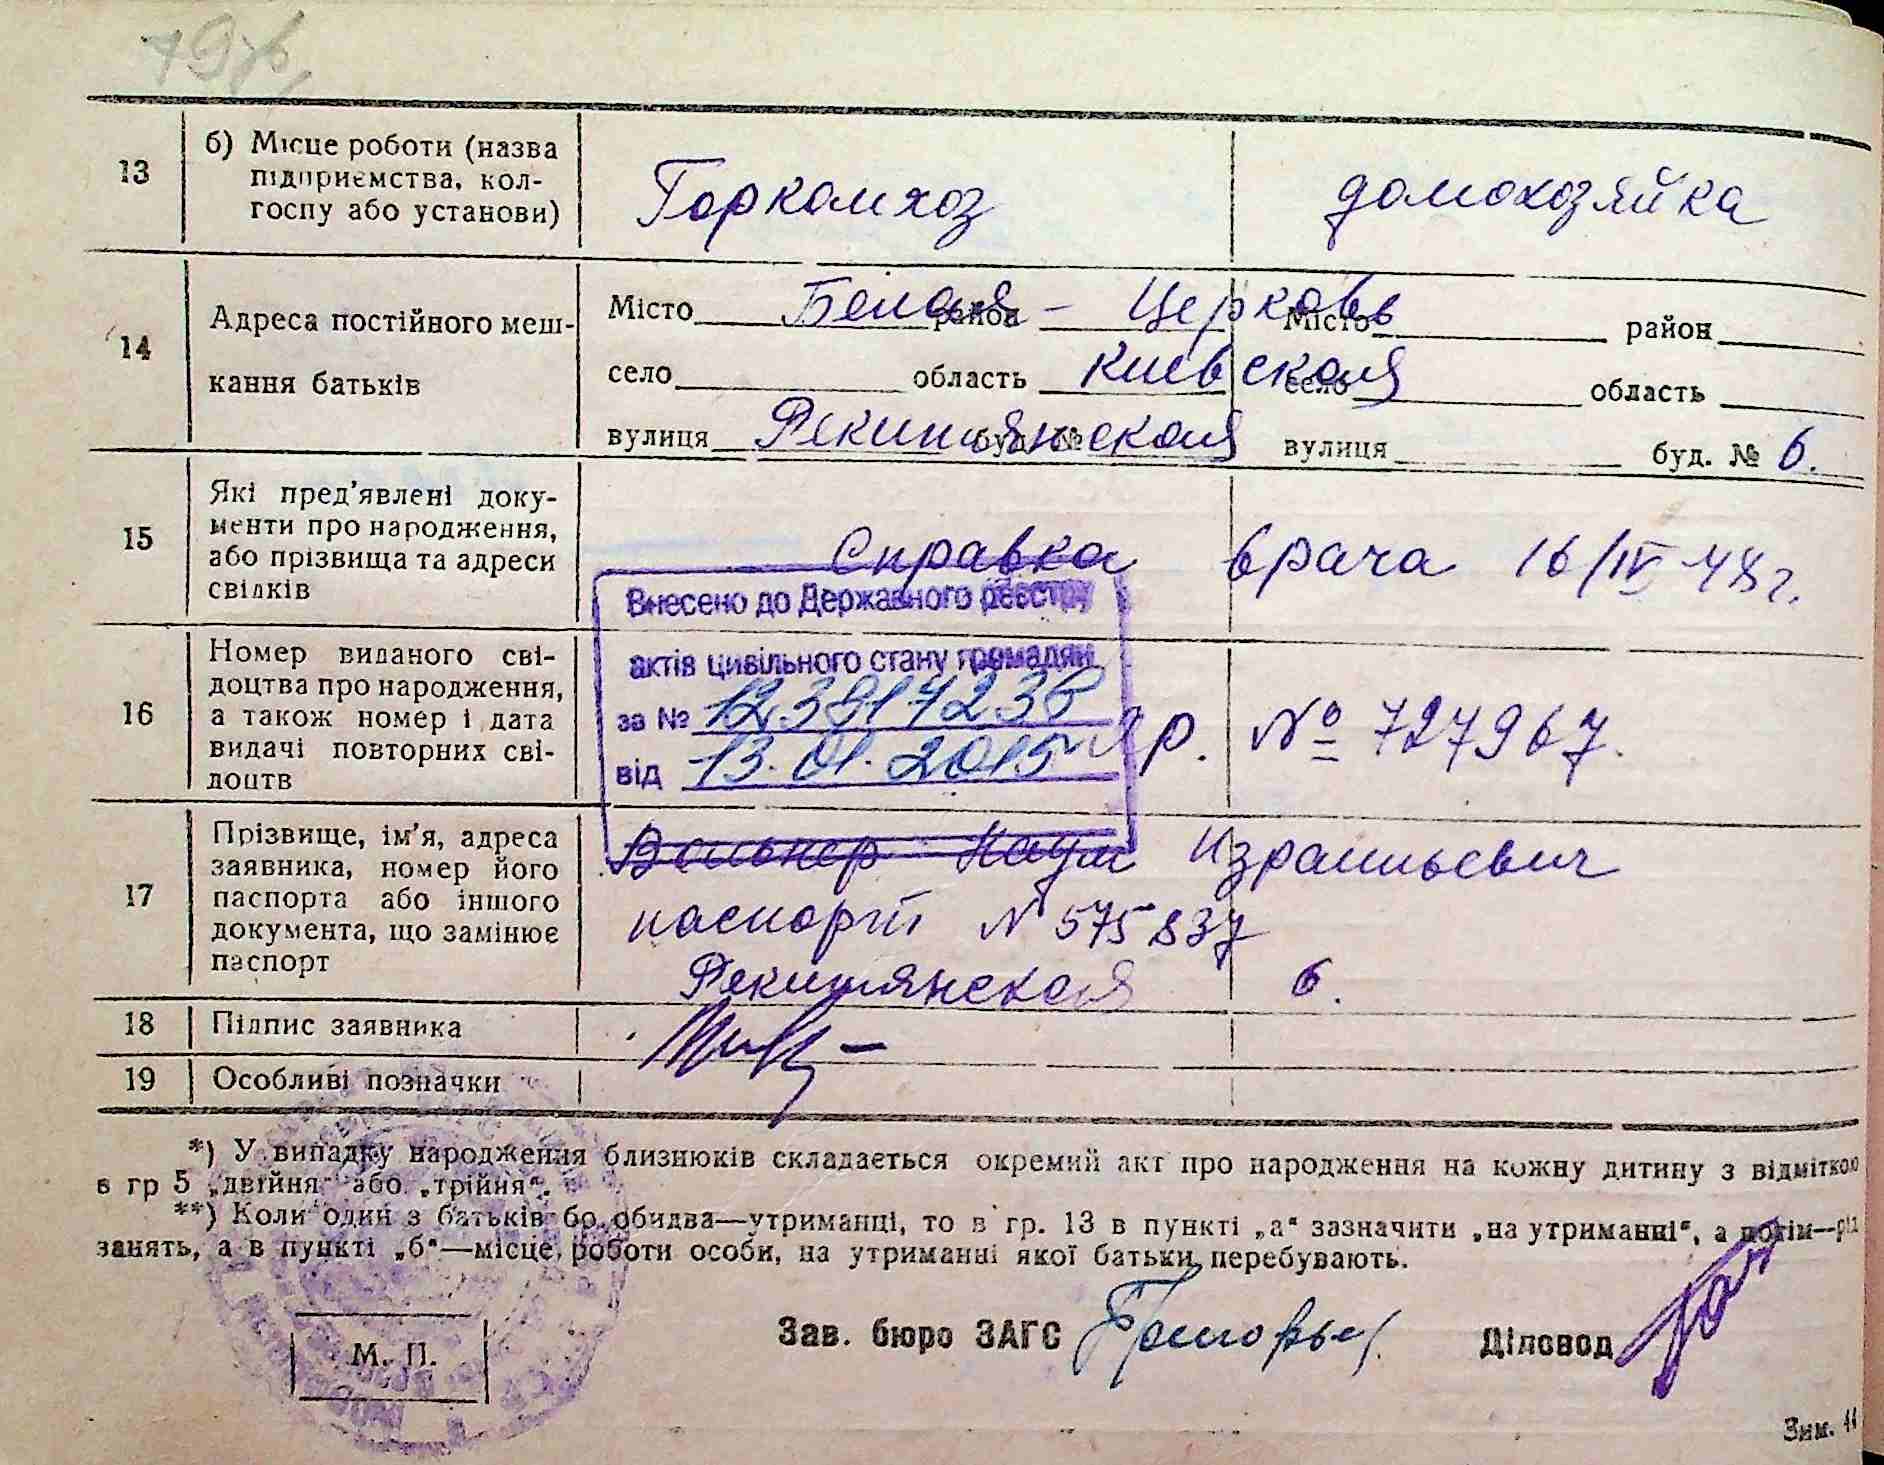 13 б) Місце роботи (назва
підприємства, кол-
госпу або установи)
Горкомхоз домохозяйка
14 Адреса постійного меш-
кання батьків
Місто Белая - Церковь район Місто район
село область Киевская село область
вулиця Рекитянская буд. № вулиця буд. № 6.
15 Які пред'явлені доку-
менти про народження,
або прізвища та адреси
свідків
Справка врача 16/IV-48г.
Внесено до Державного реєстру
актів цивільного стану громадян
за №
від 13.01.2015
16 Номер виданого сві-
доцтва про народження,
а також номер і дата
видачі повторних сві-
доцтв
№ 727967.
17 Прізвище, ім'я, адреса
заявника, номер його
паспорта або іншого
документа, що замінює
паспорт
Наум Израильевич
паспорт N 575837
Рекитянская 6.
18 Підпис заявника
19 Особливі позначки
*) У випадку народження близнюків складається окремий акт про народження на кожну дитину з відміткою
в гр 5 „двійня" або „трійня".
**) Коли один з батьків бо обидва—утриманці, то в гр. 13 в пункті „а" зазначити „на утриманні", а потім—рід
занять, а в пункті „б"—місце роботи особи, на утриманні якої батьки перебувають.
М. П.
Зав. бюро ЗАГС
Діловод
Зим. 11